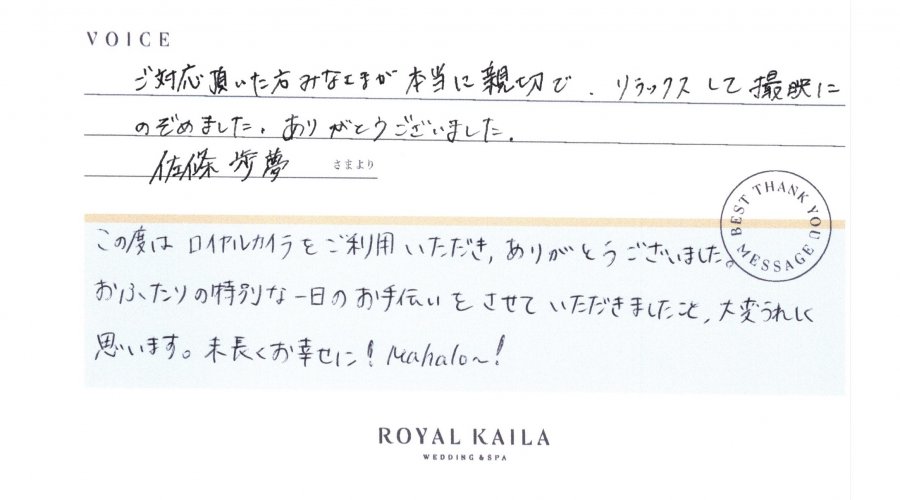 VOICE
ご対応頂いた方みなさまが本当に親切で、リラックスして撮影に
のぞめました。ありがとうございました。
佐條 歩夢 さまより
BEST THANK YOU MESSAGE
この度はロイヤルカイラをご利用いただき、ありがとうございました。
おふたりの特別な一日のお手伝いをさせていただきましたこと、大変うれしく
思います。末長くお幸せに！Mahalo〜！
ROYAL KAILA
WEDDING & SPA